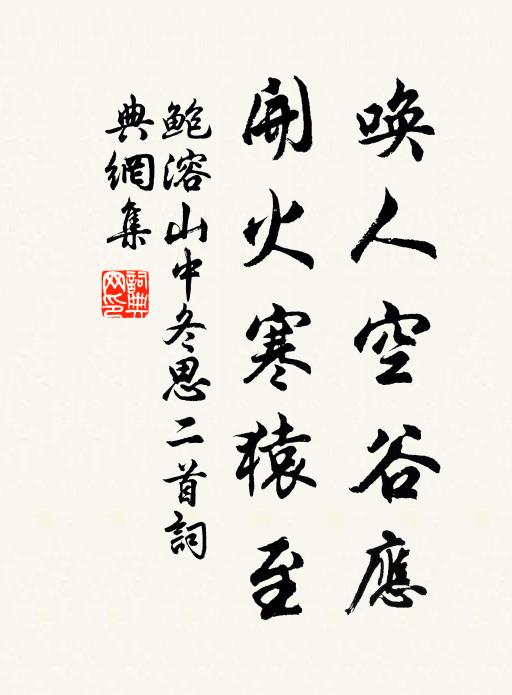 喚人空谷應
開火寒猿至
鮑溶山中冬思二首詞
典網集
詞典
网印